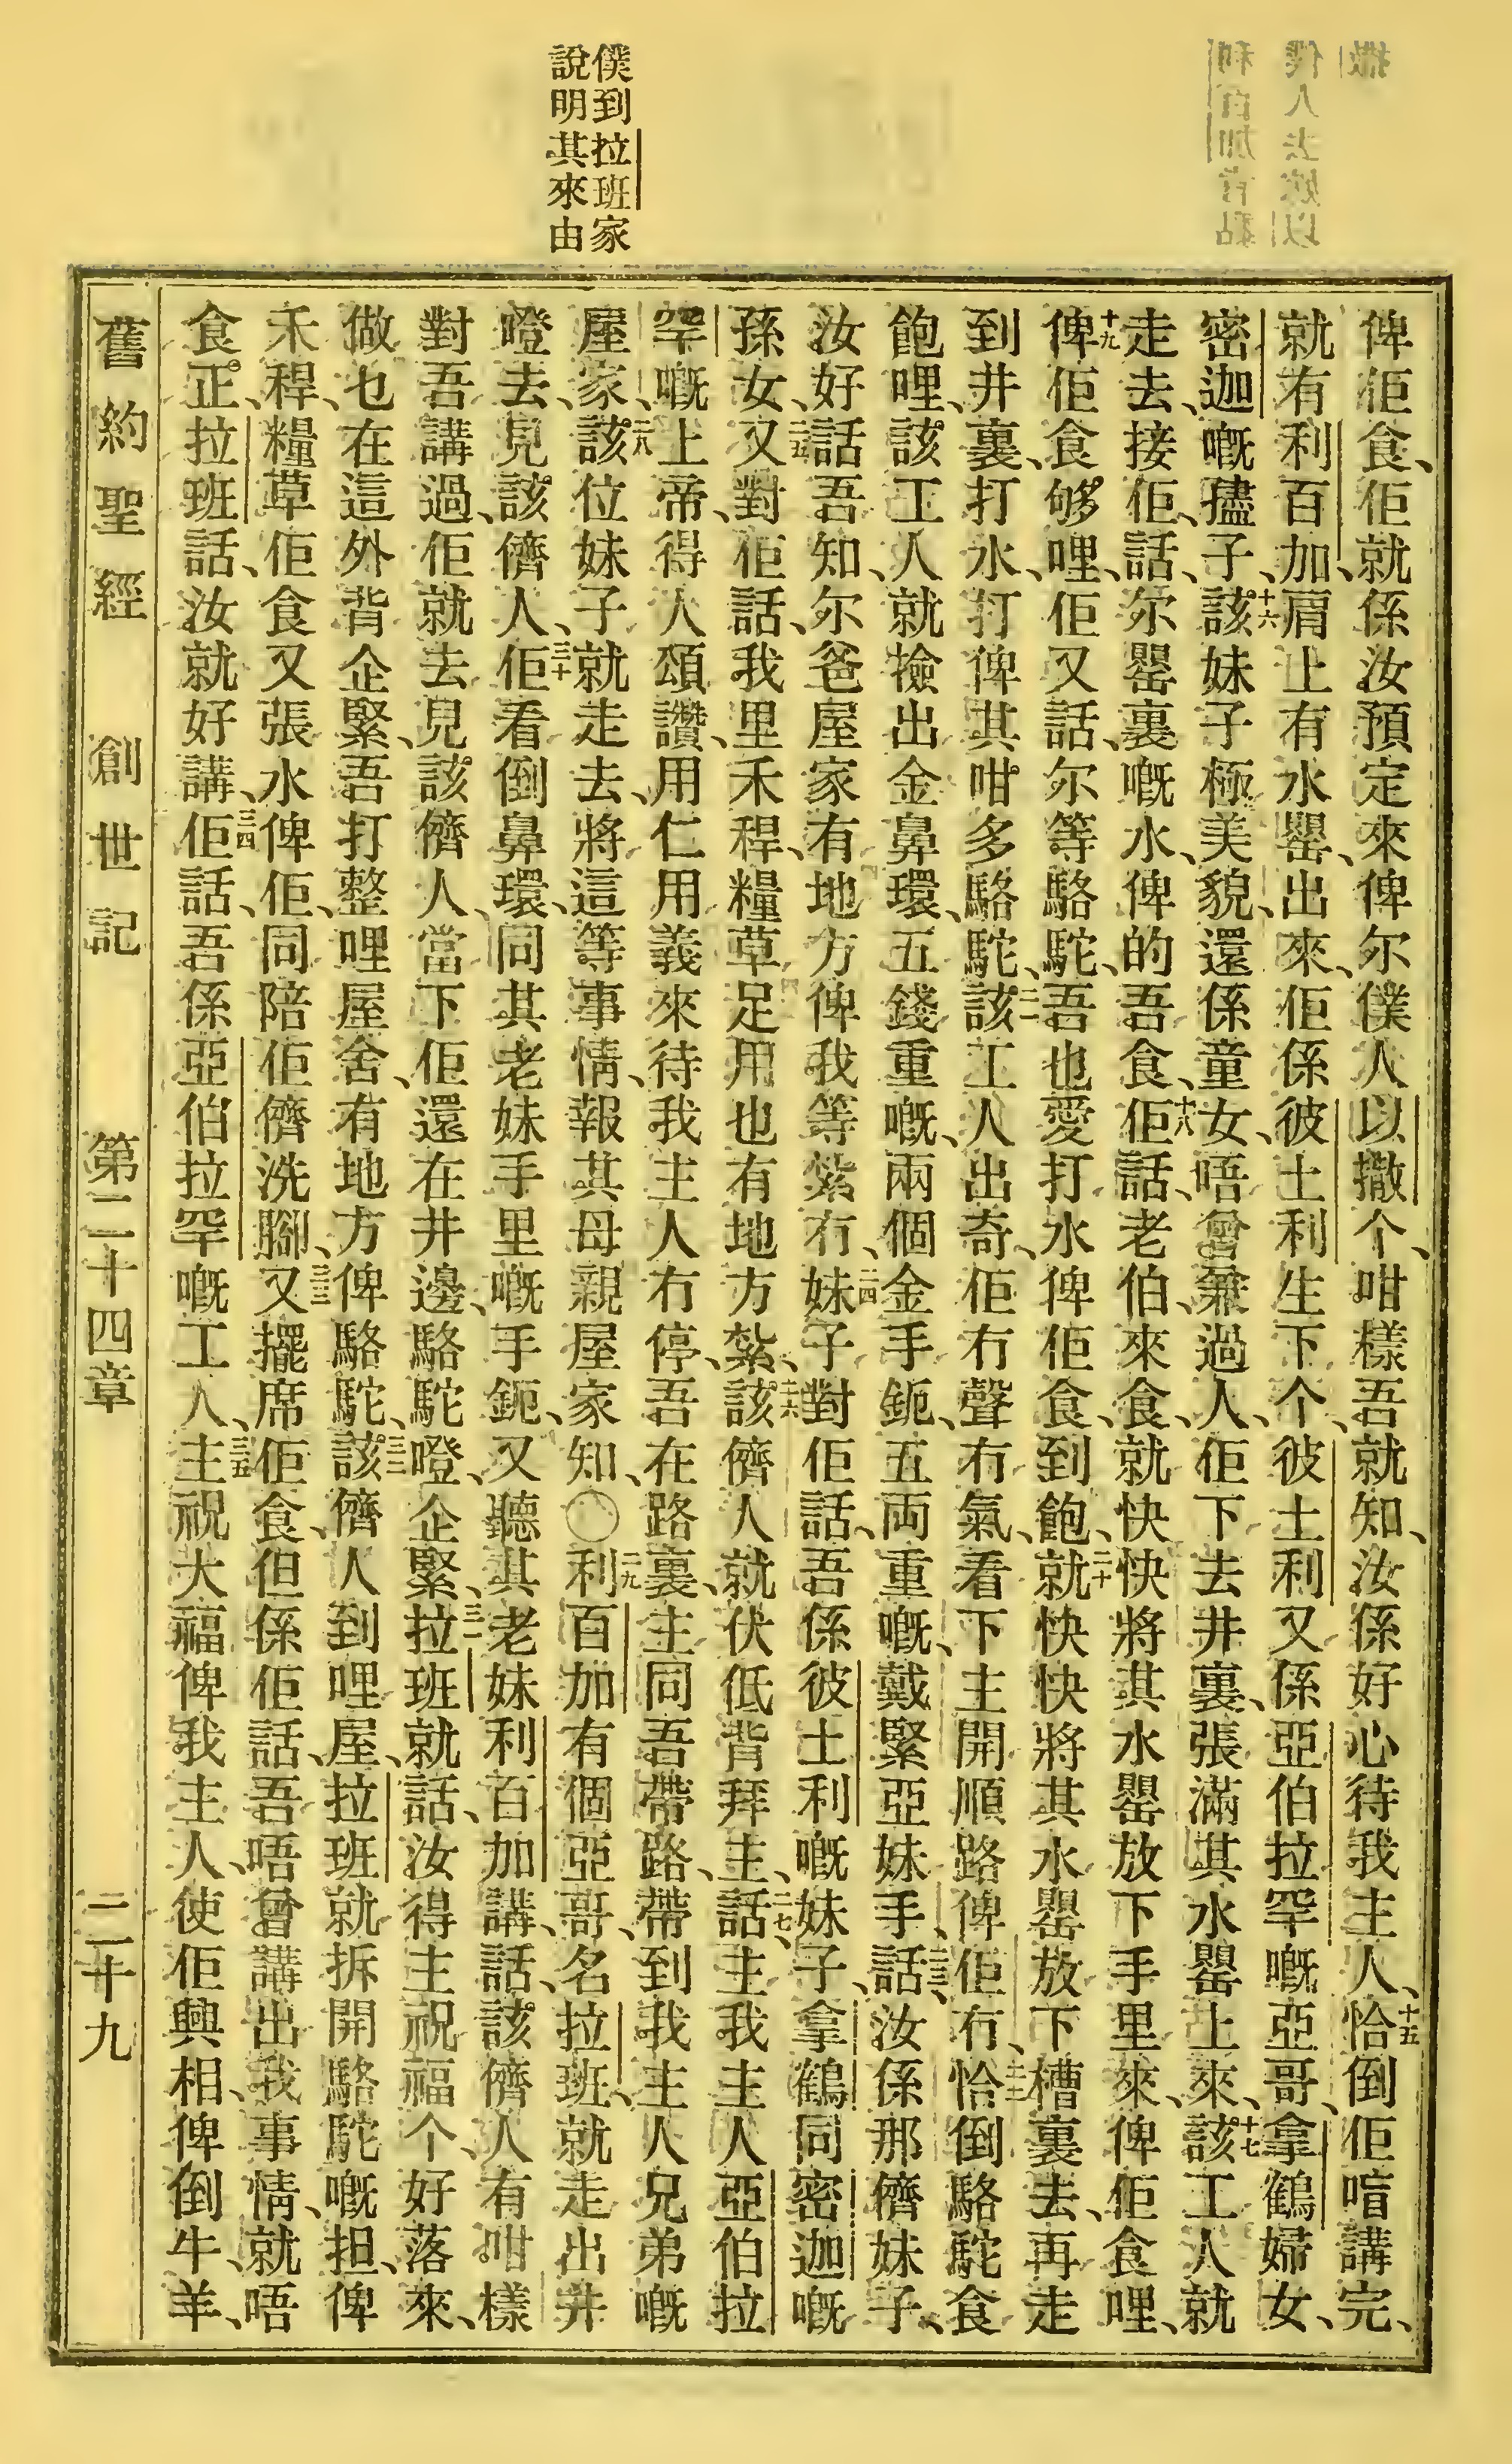 僕到拉班家
說明其來由
俾佢食、佢就係汝預定來俾尔僕人以撒个、咁樣吾就知、汝係好心待我主人、十五恰倒佢喧講完、
就有利百加、肩上有水罌、出來、佢係彼土利生下个、彼土利又係亞伯拉罕嘅亞哥、拿鶴婦女、
密迦嘅𡥧子、十六該妹子極美貌、還係童女、唔曾兼過人、佢下去井裏、張滿其水罌上來、十七該工人就
走去、接佢、話、尔罌裏嘅水、俾的吾食、十八佢話、老伯、來食、就快快將其水罌放下手里來、俾佢食哩、
十九俾佢食够哩、佢又話、尔等駱駝、吾也愛打水俾佢食、到飽、二十就快快將其水罌放下槽裏去、再走
到井裏、打水、打俾其咁多駱駝、二一該工人出奇、佢冇聲冇氣、看下主開順路俾佢冇、二二恰倒駱駝食
飽哩、該工人就撿出金鼻環、五錢重嘅、兩個金手鈪、五両重嘅、戴緊亞妹手、二三話、汝係那儕妹子、
汝好話吾知、尔爸屋家有地方俾我等紮冇、二四妹子對佢話、吾係彼土利嘅妹子、拿鶴同密迦嘅
孫女、二五又對佢話、我里禾稈、糧草足用也有地方紮、二六該儕人就伏低背拜主、二七話、主我主人亞伯拉
罕嘅上帝、得人頌讚、用仁用義來待我主人冇停、吾在路裏、主同吾帶路、帶到我主人兄弟嘅
屋家、二八該位妹子就走去、將這等事情、報其母親屋家知、〇二九利百加有個亞哥、名拉班、就走出井
嶝去、見該儕人、三十佢看倒鼻環、同其老妹手里嘅手鈪、又聽其老妹利百加講、話、該儕人有咁樣
對吾講過、佢就去見該儕人、當下佢還在井邊、駱駝嶝企緊、三一拉班就話、汝得主祝福个、好落來、
做乜在這外背企緊、吾打整哩屋舍、有地方俾駱駝、三二該儕人到哩屋、拉班就拆開駱駝嘅担、俾
禾稈、糧草佢食又張水俾佢、同陪佢儕洗腳、三三又擺席佢食、但係佢話、吾唔曾講出我事情、就唔
食正、拉班話、汝就好講、三四佢話、吾係亞伯拉罕嘅工人、三五主祝大福俾我主人、使佢興相、俾倒牛、羊、
舊約聖經　創世記　第二十四章　二十九